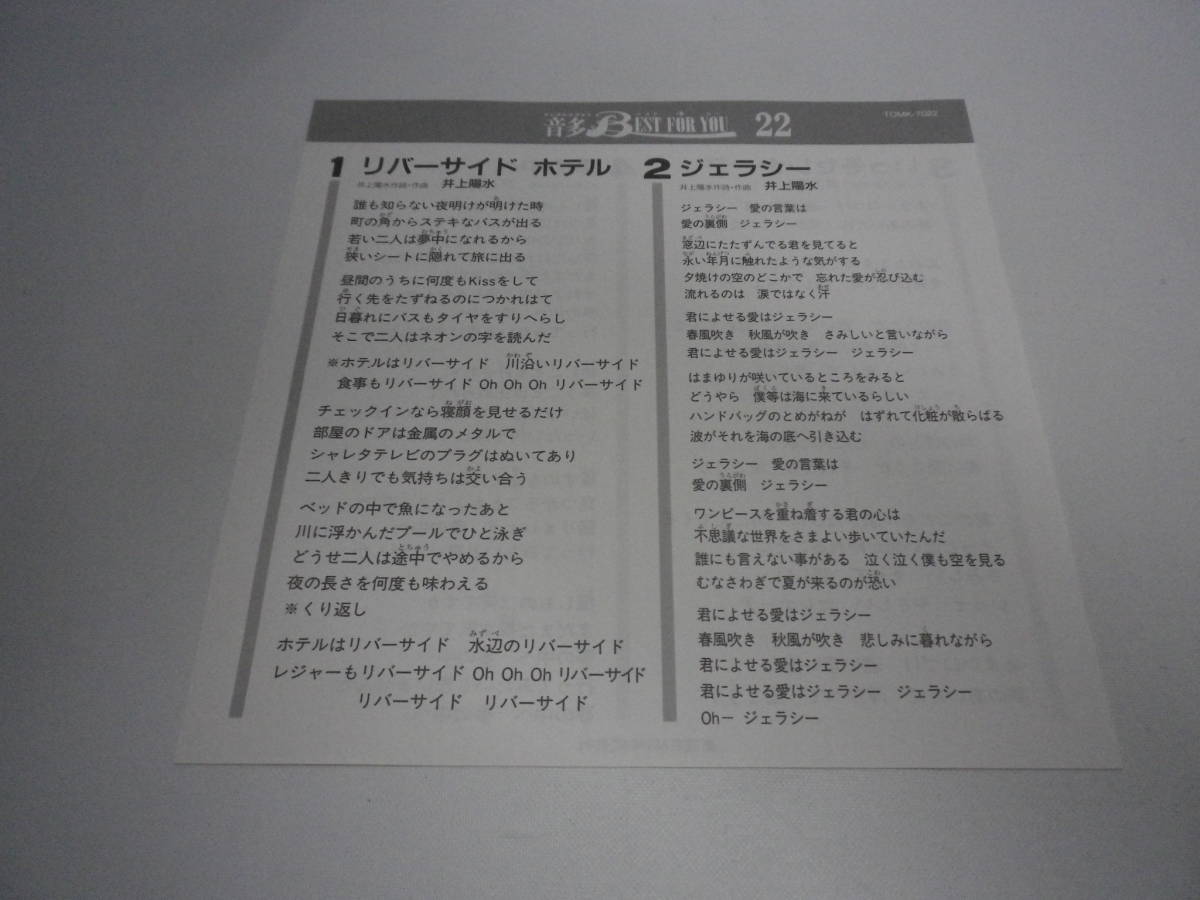 音多 BEST FOR YOU 22
TOMK-7022
1 リバーサイド ホテル
井上陽水作詩・作曲 井上陽水
誰も知らない夜明けが明けた時
町の角からステキなバスが出る
若い二人は夢中になれるから
狭いシートに隠れて旅に出る
昼間のうちに何度もKissをして
行く先をたずねるのにつかれはて
日暮れにバスもタイヤをすりへらし
そこで二人はネオンの字を読んだ
※ホテルはリバーサイド 川沿いリバーサイド
食事もリバーサイド Oh Oh Oh リバーサイド
チェックインなら寝顔を見せるだけ
部屋のドアは金属のメタルで
シャレタテレビのプラグはぬいてあり
二人きりでも気持ちは交い合う
ベッドの中で魚になったあと
川に浮かんだプールでひと泳ぎ
どうせ二人は途中でやめるから
夜の長さを何度も味わえる
※くり返し
ホテルはリバーサイド 水辺のリバーサイド
レジャーもリバーサイド Oh Oh Oh リバーサイド
リバーサイド リバーサイド
2 ジェラシー
井上陽水作詩・作曲 井上陽水
ジェラシー 愛の言葉は
愛の裏側 ジェラシー
窓辺にたたずんでる君を見てると
永い年月に触れたような気がする
夕焼けの空のどこかで 忘れた愛が忍び込む
流れるのは 涙ではなく汗
君によせる愛はジェラシー
春風吹き 秋風が吹き さみしいと言いながら
君によせる愛はジェラシー ジェラシー
はまゆりが咲いているところをみると
どうやら 僕等は海に来ているらしい
ハンドバッグのとめがねが はずれて化粧が散らばる
波がそれを海の底へ引き込む
ジェラシー 愛の言葉は
愛の裏側 ジェラシー
ワンピースを重ね着する君の心は
不思議な世界をさまよい歩いていたんだ
誰にも言えない事がある 泣く泣く僕も空を見る
むなさわぎで夏が来るのが恐い
君によせる愛はジェラシー
春風吹き 秋風が吹き 悲しみに暮れながら
君によせる愛はジェラシー
君によせる愛はジェラシー ジェラシー
Oh− ジェラシー